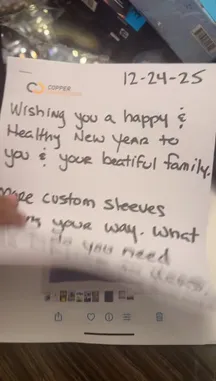 COPPER
12-24-25
Wishing you a happy &
Healthy New Year to
you & your beatiful family.
more custom sleeves
your way. What
you need